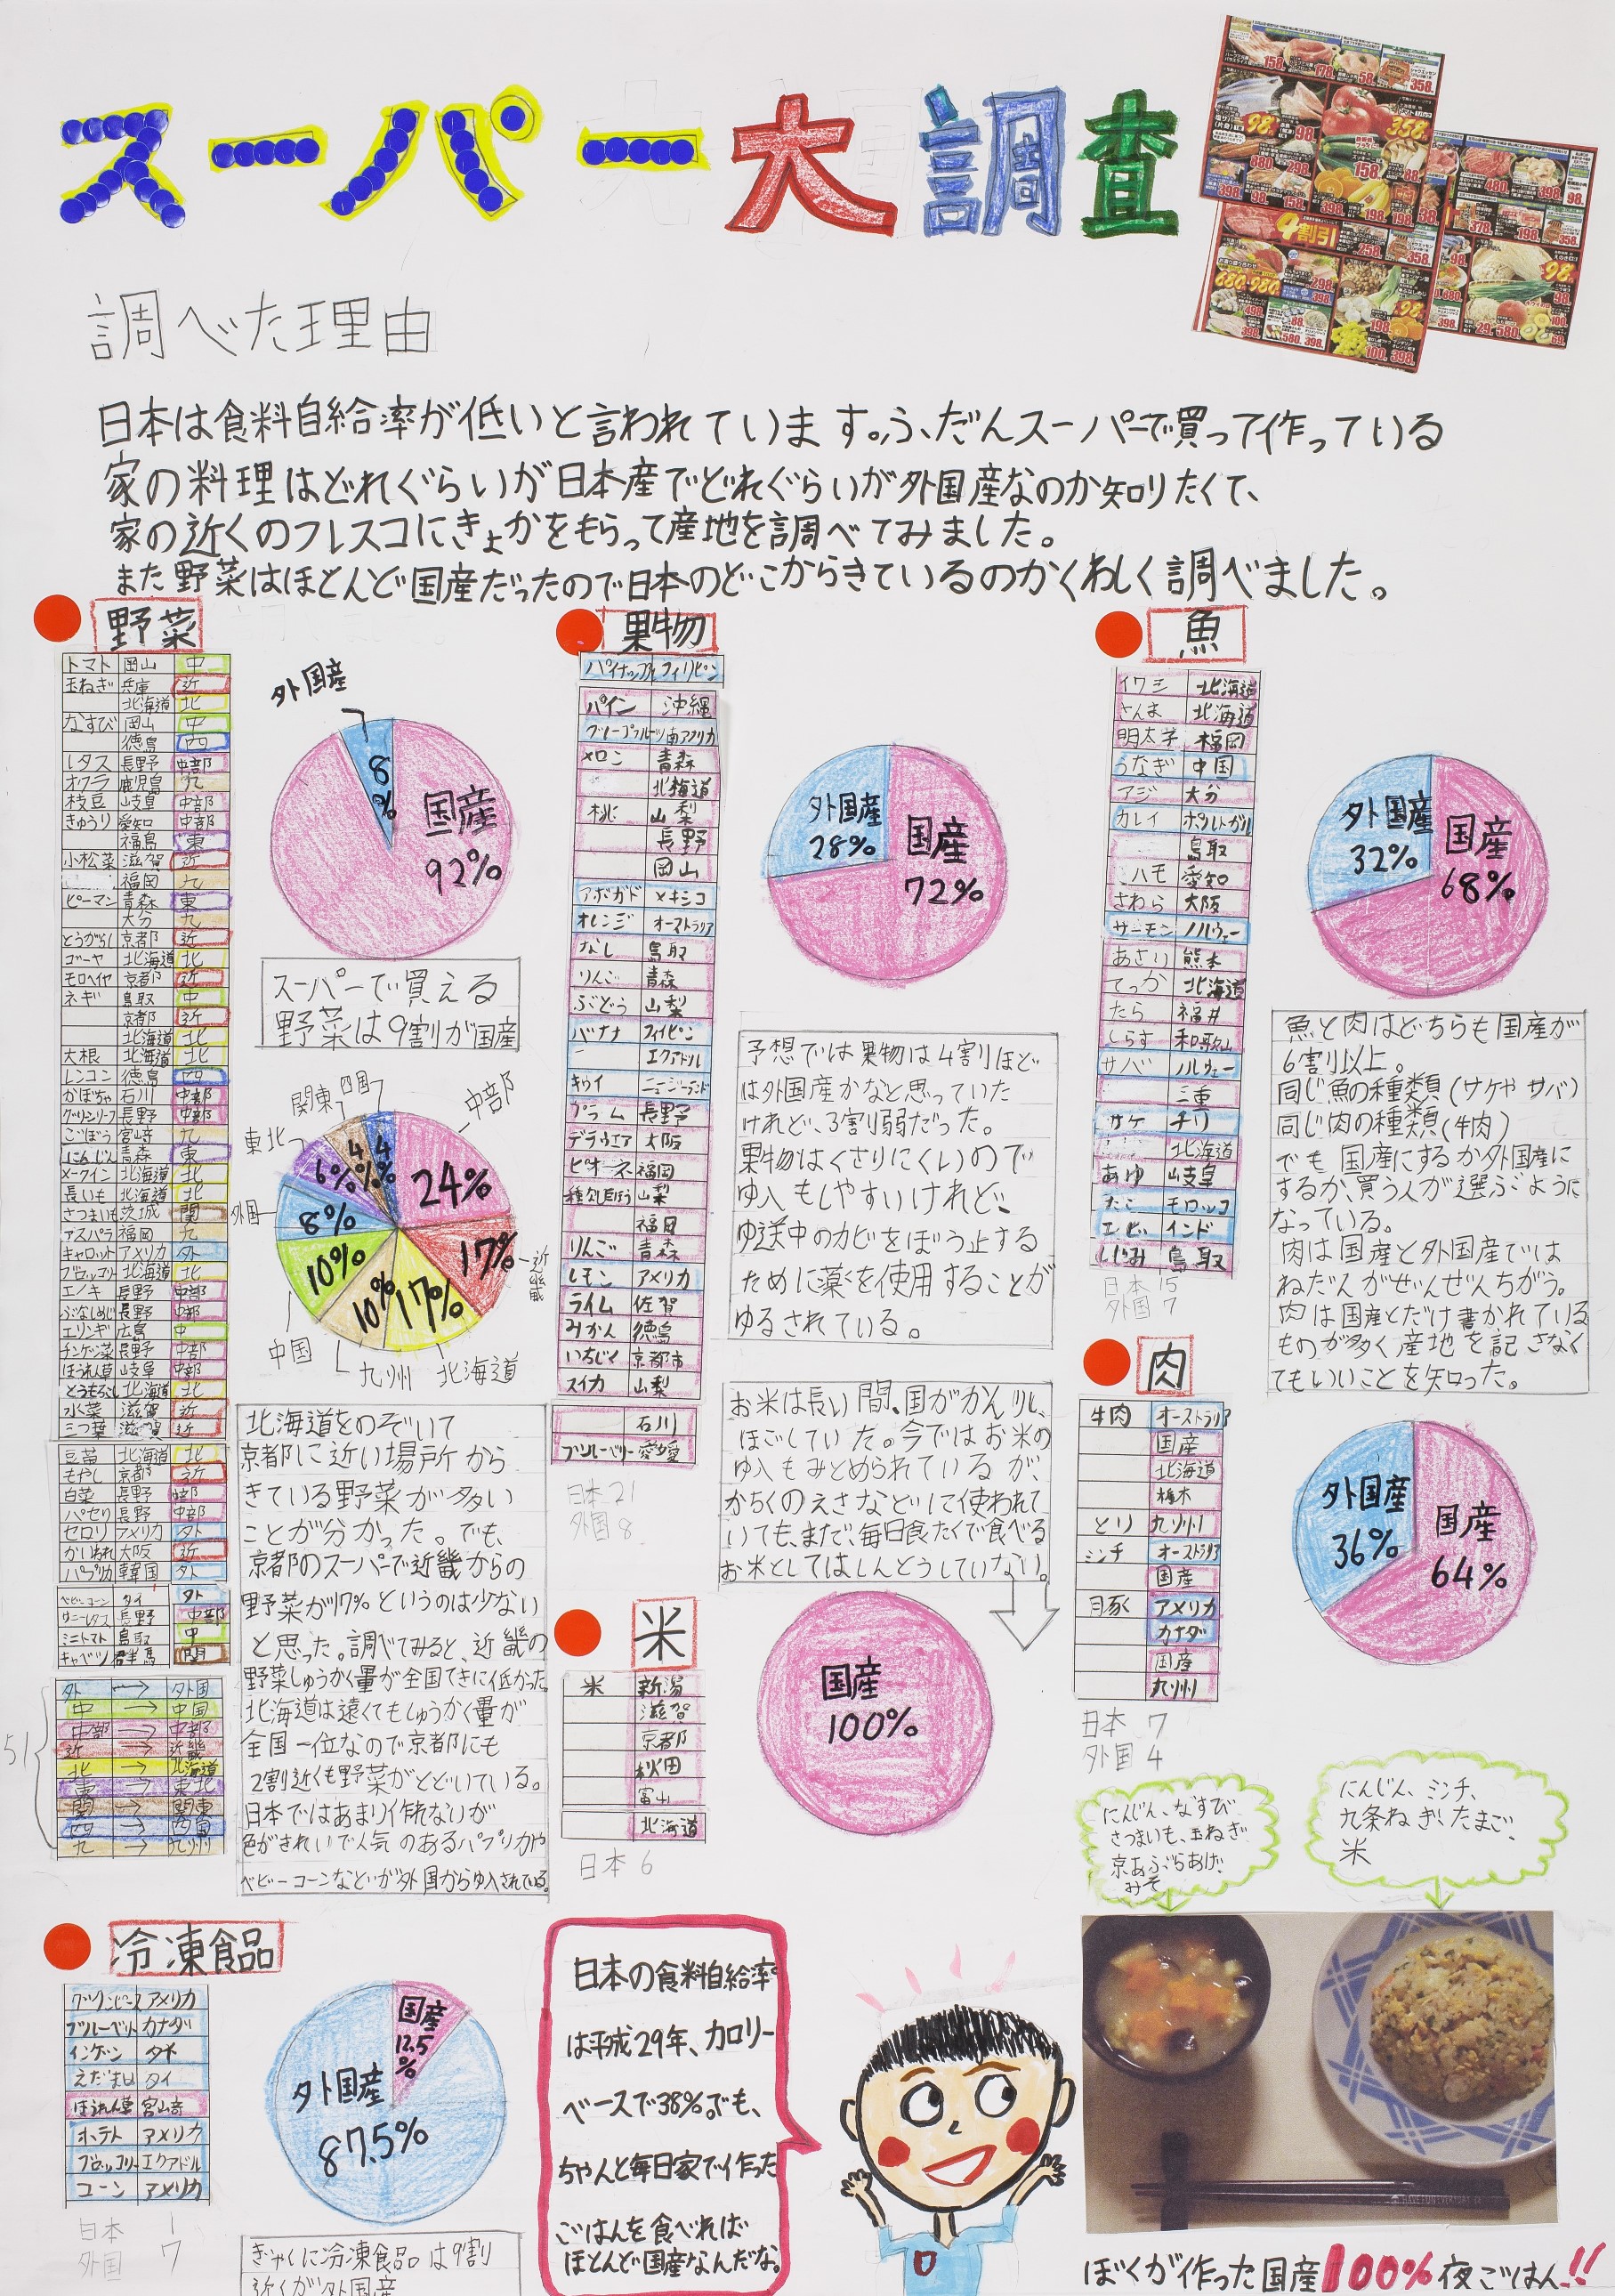 スーパー大調査
調べた理由
日本は食料自給率が低いと言われています。ふだんスーパーで買って作っている
家の料理はどれぐらいが日本産でどれぐらいが外国産なのか知りたくて、
家の近くのフレスコにきょかをもらって産地を調べてみました。
また野菜はほとんど国産だったので日本のどこからきているのかくわしく調べました。
野菜
トマト 岡山 中
玉ねぎ 兵庫 近
北海道 北
なすび 岡山 中
徳島 四
レタス 長野 中部
オクラ 鹿児島 九
枝豆 岐阜 中部
きゅうり 愛知 中部
福島 東
小松菜 滋賀 近
福岡 九
ピーマン 青森 東
大分 九
とうがらし 京都 近
ゴーヤ 北海道 北
モロヘイヤ 京都 近
ネギ 鳥取 中
京都 近
北海道 北
大根 北海道 北
レンコン 徳島 四
かぼちゃ 石川 中部
グリーンリーフ 長野 中部
ごぼう 宮崎 九
にんじん 青森 東
メークイン 北海道 北
長いも 北海道 北
さつまいも 茨城 関
アスパラ 福岡 九
キャロット アメリカ 外
ブロッコリー 北海道 北
エノキ 長野 中部
ぶなしめじ 長野 中部
エリンギ 広島 中
チンゲン菜 長野 中部
ほうれん草 岐阜 中部
とうもろこし 北海道 北
水菜 滋賀 近
三つ葉 滋賀 近
豆苗 北海道 北
もやし 京都 近
白菜 長野 中部
パセリ 長野 中部
セロリ アメリカ 外
かいわれ 大阪 近
パプリカ 韓国 外
ベビーコーン タイ 外
サニーレタス 長野 中部
ミニトマト 鳥取 中
キャベツ 群馬 関
51
外 → 外国
中 → 中国
中部 → 中部
近 → 近畿
北 → 北海道
東 → 東北
関 → 関東
四 → 四国
九 → 九州
外国産
8%
国産
92%
スーパーで買える
野菜は9割が国産
中部
24%
近畿
17%
北海道
17%
九州
10%
中国
10%
外国
8%
東北
6%
関東
4%
四国
4%
北海道をのぞいて
京都に近い場所から
きている野菜が多い
ことが分かった。でも、
京都のスーパーで近畿からの
野菜が17%というのは少ない
と思った。調べてみると、近畿の
野菜しゅうかく量が全国てきに低かった。
北海道は遠くてもしゅうかく量が
全国一位なので京都にも
2割近くも野菜がとどいている。
日本ではあまり作れないが
色がきれいで人気のあるパプリカや
ベビーコーンなどが外国からゆ入されている。
果物
パイナップル フィリピン
パイン 沖縄
グレープフルーツ 南アフリカ
メロン 青森
北海道
桃 山梨
長野
岡山
アボガド メキシコ
オレンジ オーストラリア
なし 鳥取
りんご 青森
ぶどう 山梨
バナナ フィリピン
エクアドル
キウイ ニュージーランド
プラム 長野
デラウエア 大阪
ピオーネ 福岡
種なし巨ほう 山梨
福岡
りんご 青森
レモン アメリカ
ライム 佐賀
みかん 徳島
いちじく 京都市
スイカ 山梨
石川
ブルーベリー 愛媛
日本 21
外国 8
外国産
28%
国産
72%
予想では果物は4割ほど
は外国産かなと思っていた
けれど、3割弱だった。
果物はくさりにくいので
ゆ入もしやすいけれど
ゆ送中のカビをぼう止する
ために薬を使用することが
ゆるされている。
お米は長い間、国がかんりし、
ほごしていた。今ではお米の
ゆ入もみとめられているが、
かちくのえさなどに使われて
いても、まだ、毎日食たくで食べる
お米としてはしんとうしていない。
米
米 新潟
滋賀
京都
秋田
富山
北海道
日本 6
国産
100%
魚
イワシ 北海道
さんま 北海道
明太子 福岡
うなぎ 中国
アジ 大分
カレイ ポルトガル
鳥取
ハモ 愛知
さわら 大阪
サーモン ノルウェー
あさり 熊本
てっか 北海道
たら 福井
しらす 和歌山
サバ ノルウェー
三重
サケ チリ
北海道
あゆ 岐阜
たこ モロッコ
エビ インド
しじみ 鳥取
日本 15
外国 7
外国産
32%
国産
68%
魚と肉はどちらも国産が
6割以上。
同じ魚の種類(サケやサバ)
同じ肉の種類(牛肉)
でも国産にするか外国産に
するか、買う人が選ぶように
なっている。
肉は国産と外国産では
ねだんがぜんぜんちがう。
肉は国産とだけ書かれている
ものが多く産地を記さなく
てもいいことを知った。
肉
牛肉 オーストラリア
国産
北海道
栃木
とり 九州
ミンチ オーストラリア
国産
豚 アメリカ
カナダ
国産
九州
日本 7
外国 4
外国産
36%
国産
64%
にんじん、なすび
さつまいも、玉ねぎ
京あぶらあげ
みそ
にんじん、ミンチ、
九条ねぎ、たまご、
米
冷凍食品
グリンピース アメリカ
ブルーベリー カナダ
インゲン タイ
えだまめ タイ
ほうれん草 宮崎
ポテト アメリカ
ブロッコリー エクアドル
コーン アメリカ
日本 1
外国 7
国産
12.5%
外国産
87.5%
ぎゃくに冷凍食品は9割
近くが外国産
日本の食料自給率
は平成29年、カロリー
ベースで38%。でも、
ちゃんと毎日家で作った
ごはんを食べれば
ほとんど国産なんだな。
ぼくが作った国産100%夜ごはん!!